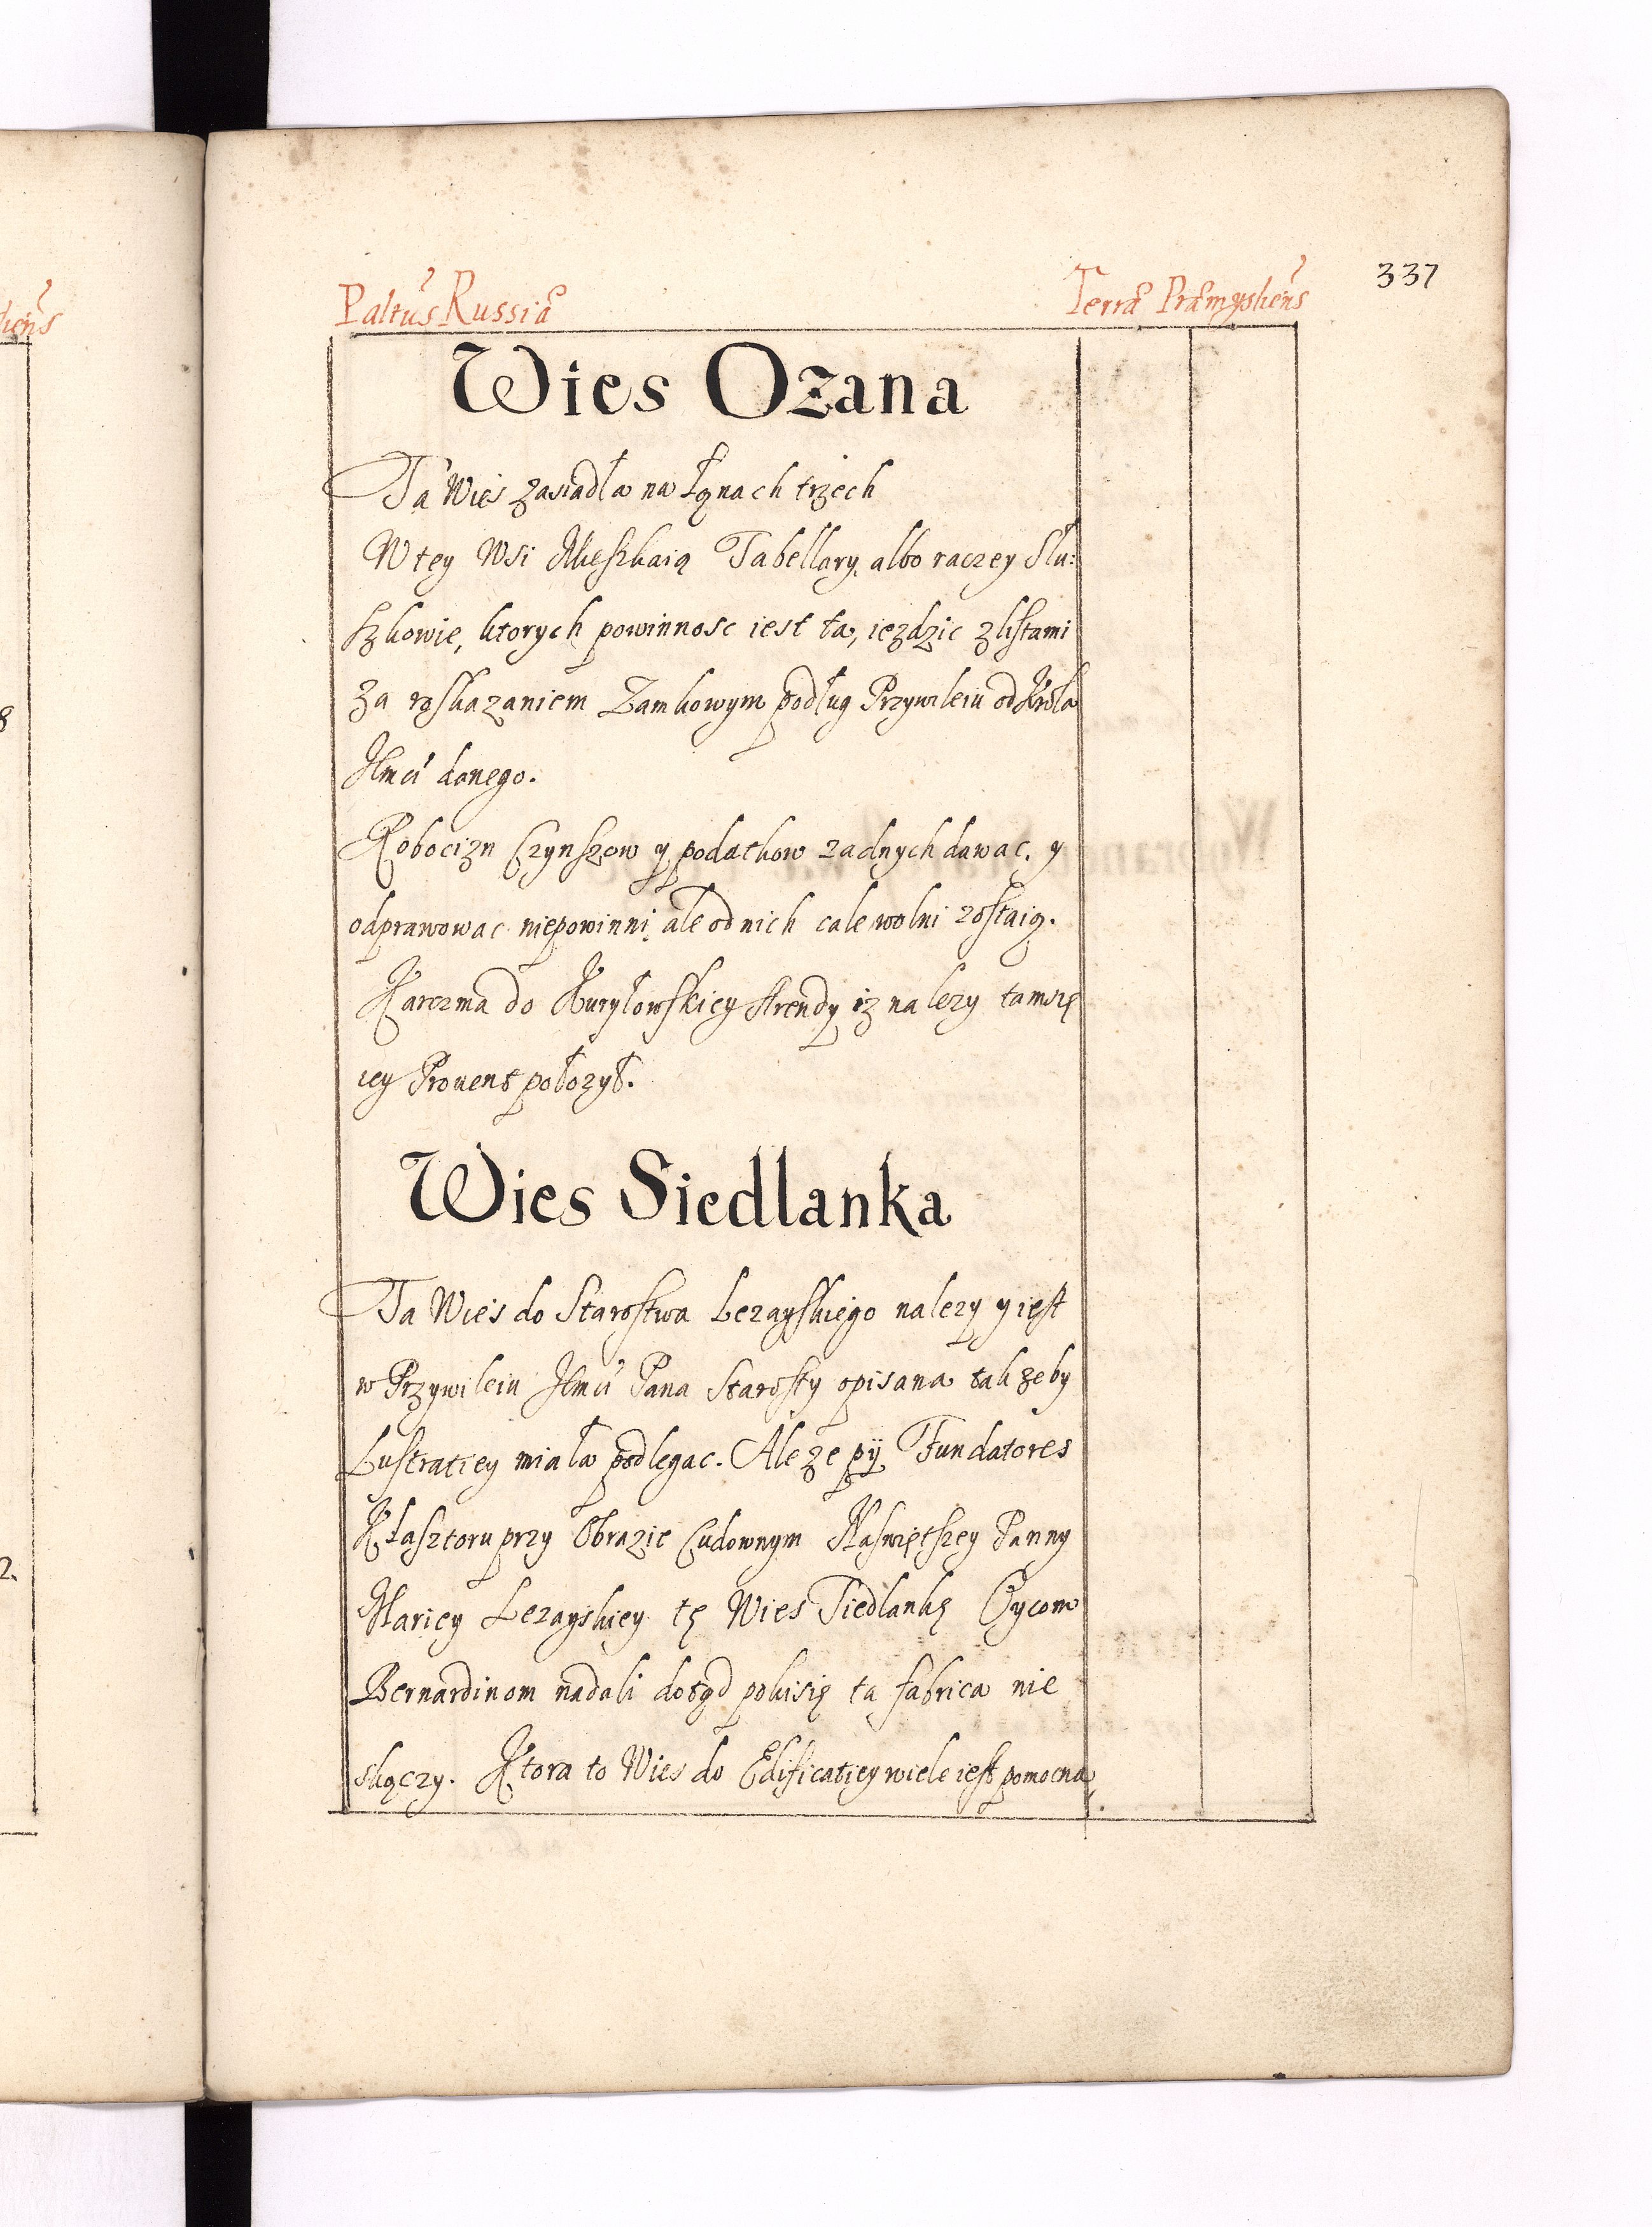 Paltus Russiæ
Terræ Præmysliens
337
Wies Ozana
Ta Wies zasiadła na Łanach trzech
W tey Wsi Mieszkaią Tabellary, albo raczey Słu:
szkowie, ktorych powinnosc iest ta, iezdzic z listami
za roskazaniem Zamkowym podług Przywileiu od Krola
Jmci danego.
Robocizn Czynszow y podatkow zadnych dawac, y
odprawowac niepowinni, ale od nich cale wolni zostaią.
Karczma do Kuryłowskiey Arendy iz nalezy tam się
iey Prouent połozył.
Wies Siedlanka
Ta Wies do Starostwa Lezayskiego nalezy y iest
w Przywileiu Jmci Pana Starosty opisana tak zeby
Lustratiey miała podlegac. Ale ze pij Fundatores
Klasztoru przy Obrazie Cudownym Naswiętszey Panny
Mariey Lezayskiey tę Wies Siedlankę Oycom
Bernardinom nadali dotąd poki się ta fabrica nie
skączy. Ktora to Wies do Edificatiey wiele iest pomocna,